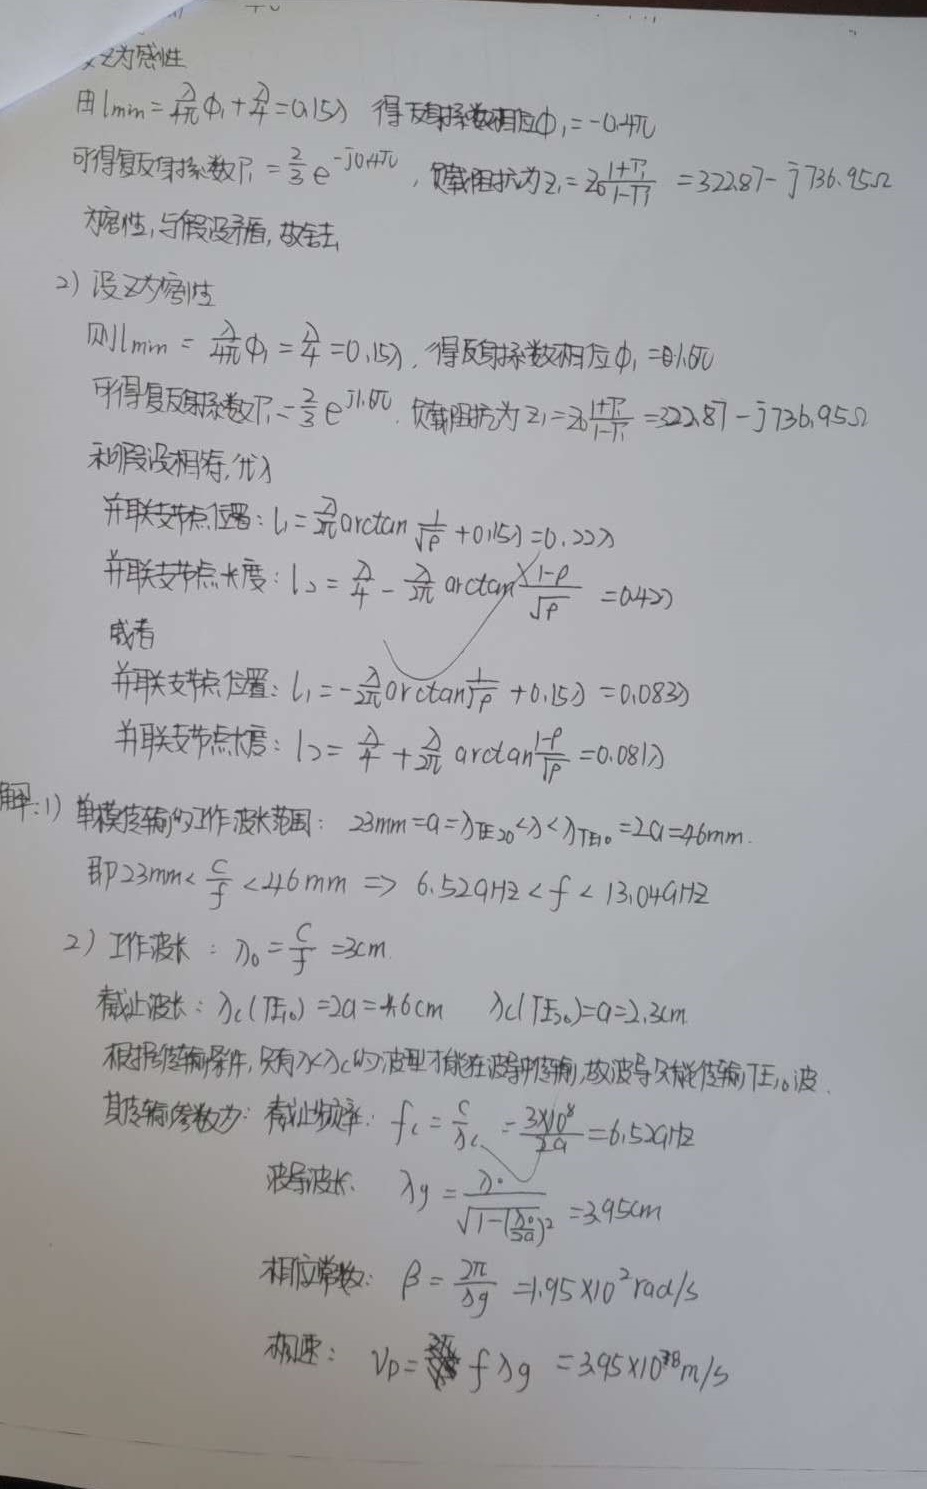 设Z为感性
由lmin = λ/4π Φ₁ + λ/4 = 0.15λ 得反射系数相位Φ₁ = -0.4π
可得复反射系数Γ₁ = 2/3 e^{-j0.4π}, 负载阻抗为Z₁ = Z₀ (1+Γ₁)/(1-Γ₁) = 322.87 - j736.95Ω
为容性, 与假设矛盾, 故舍去
2) 设Z为容性
则lmin = λ/4π Φ₁ = λ/4 = 0.15λ, 得反射系数相位Φ₁ = 1.6π
可得复反射系数Γ₁ = 2/3 e^{j1.6π}, 负载阻抗为Z₁ = Z₀ (1+Γ₁)/(1-Γ₁) = 322.87 - j736.95Ω
和假设相符, 代入
并联支节点位置: l₁ = λ/2π arctan 1/√ρ + 0.15λ = 0.22λ
并联支节点长度: l₂ = λ/4 - λ/2π arctan (1-ρ)/√ρ = 0.42λ
或者
并联支节点位置: l₁ = -λ/2π arctan 1/√ρ + 0.15λ = 0.083λ
并联支节点长度: l₂ = λ/4 + λ/2π arctan (1-ρ)/√ρ = 0.081λ
解: 1) 单模传输的工作波长范围: 23mm = a = λTE20 < λ < λTE10 = 2a = 46mm.
即 23mm < c/f < 46mm => 6.52GHz < f < 13.04GHz
2) 工作波长: λ₀ = c/f = 3cm
截止波长: λc(TE₁₀) = 2a = 4.6cm λc(TE₂₀) = a = 2.3cm
根据传输条件, 只有λ<λc的波型才能在波导中传输, 故波导只能传输TE₁₀波.
其传输参数为: 截止频率: fc = c/λc = 3×10⁸/2a = 6.52GHz
波导波长. λg = λ₀/√(1-(λ₀/2a)²) = 3.95cm
相位常数: β = 2π/λg = 1.95×10² rad/s
相速: Vp = fλg = 3.95×10⁸m/s